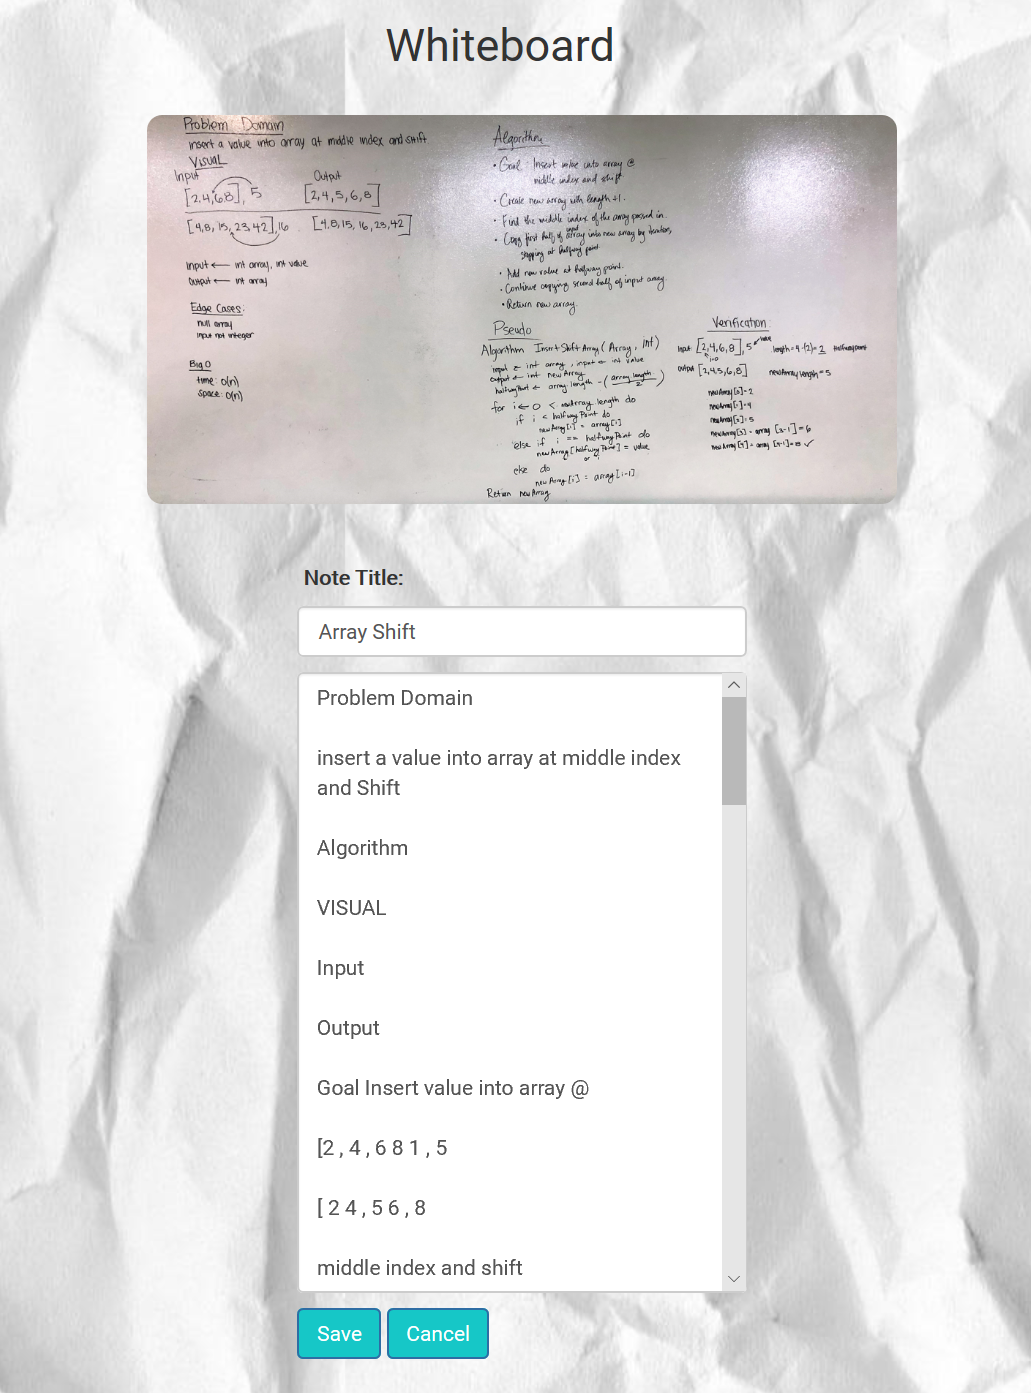 Whiteboard
Problem Domain
insert a value into array at middle index and shift
VISUAL
Input
Output
[2,4,6,8], 5
[2,4,5,6,8]
[4,8,15,23,42],16
[4,8,15,16,23,42]
Input ← int array, int value
Output ← int array
Edge Cases:
null array
input not integer
Big O
time: O(n)
space: O(n)
Algorithm
• Goal Insert value into array @
middle index and shift
• Create new array with length +1.
• Find the middle index of the array passed in.
• Copy first half of input array into new array by iteration,
stopping at halfway point.
• Add new value at halfway point.
• Continue copying second half of input array.
• Return new array.
Pseudo
Algorithm InsertShiftArray (Array, int)
input ← int array, input ← int value
output ← int newArray
halfwayPoint ← array.length - (array.length / 2)
for i ← 0 < newArray.length do
if i < halfwayPoint do
newArray[i] = array[i]
else if i == halfwayPoint do
newArray[halfwayPoint] = value
or i
else do
newArray[i] = array[i-1]
Return newArray
Verification
Input: [2,4,6,8], 5 value
length = 4 - (2) = 2 halfwaypoint
i=0
output [2,4,5,6,8]
newArray length = 5
newArray[0] = 2
newArray[1] = 4
newArray[2] = 5
newArray[3] = array [3-1] = 6
newArray[4] = array [4-1] = 8 ✓
Note Title:
Array Shift
Problem Domain
insert a value into array at middle index
and Shift
Algorithm
VISUAL
Input
Output
Goal Insert value into array @
[2 , 4 , 6 8 1 , 5
[ 2 4 , 5 6 , 8
middle index and shift
Save
Cancel